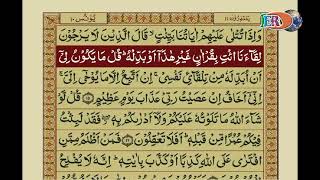 يعتذرون ١١ يونس ١٠
وَاِذَا تُتْلٰى عَلَيْهِمْ اٰيَاتُنَا بَيِّنٰتٍ ۙ قَالَ الَّذِيْنَ لَا يَرْجُوْنَ
لِقَآءَنَا ائْتِ بِقُرْاٰنٍ غَيْرِ هٰذَاۤ اَوْ بَدِّلْهُ ؕ قُلْ مَا يَكُوْنُ لِيْۤ
اَنْ اُبَدِّلَهٗ مِنْ تِلْقَآئِ نَفْسِيْ ۚ اِنْ اَتَّبِعُ اِلَّا مَا يُوْحٰۤى اِلَيَّ ۚ
اِنِّيْۤ اَخَافُ اِنْ عَصَيْتُ رَبِّيْ عَذَابَ يَوْمٍ عَظِيْمٍ ۝١٥ قُلْ لَّوْ
شَآءَ اللّٰهُ مَا تَلَوْتُهٗ عَلَيْكُمْ وَلَاۤ اَدْرٰىكُمْ بِهٖ ۖ فَقَدْ لَبِثْتُ
فِيْكُمْ عُمُرًا مِّنْ قَبْلِهٖ ؕ اَفَلَا تَعْقِلُوْنَ ۝١٦ فَمَنْ اَظْلَمُ مِمَّنِ
افْتَرٰى عَلَى اللّٰهِ كَذِبًا اَوْ كَذَّبَ بِاٰيٰتِهٖ ؕ اِنَّهٗ لَا يُفْلِحُ